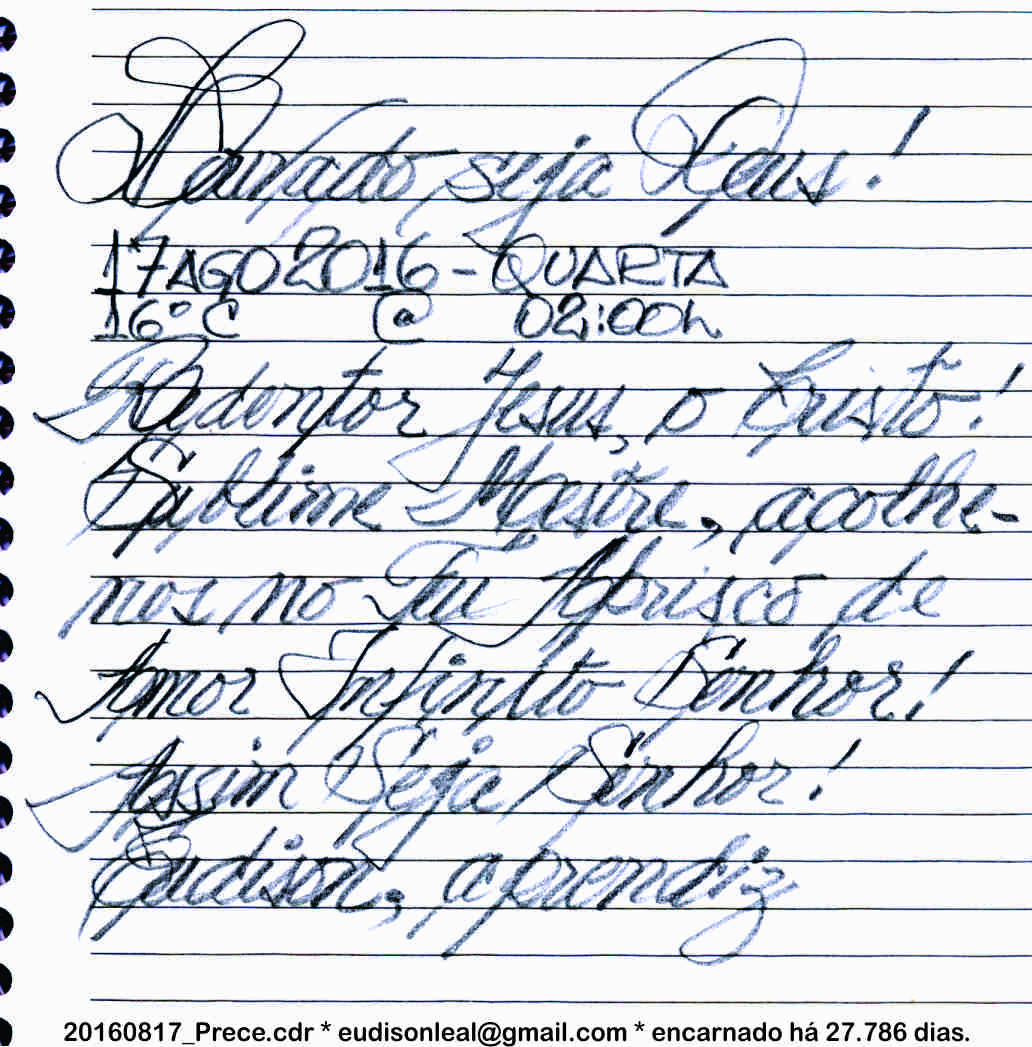 Louvado seja Deus!
17AGO2016 - QUARTA
16°C @ 02:00h
Redentor Jesus, o Cristo!
Sublime Mestre, acolhe-
nos no Teu Aprisco de
Amor Infinito Senhor!
Assim Seja Senhor!
Eudison, aprendiz
20160817_Prece.cdr * eudisonleal@gmail.com * encarnado há 27.786 dias.